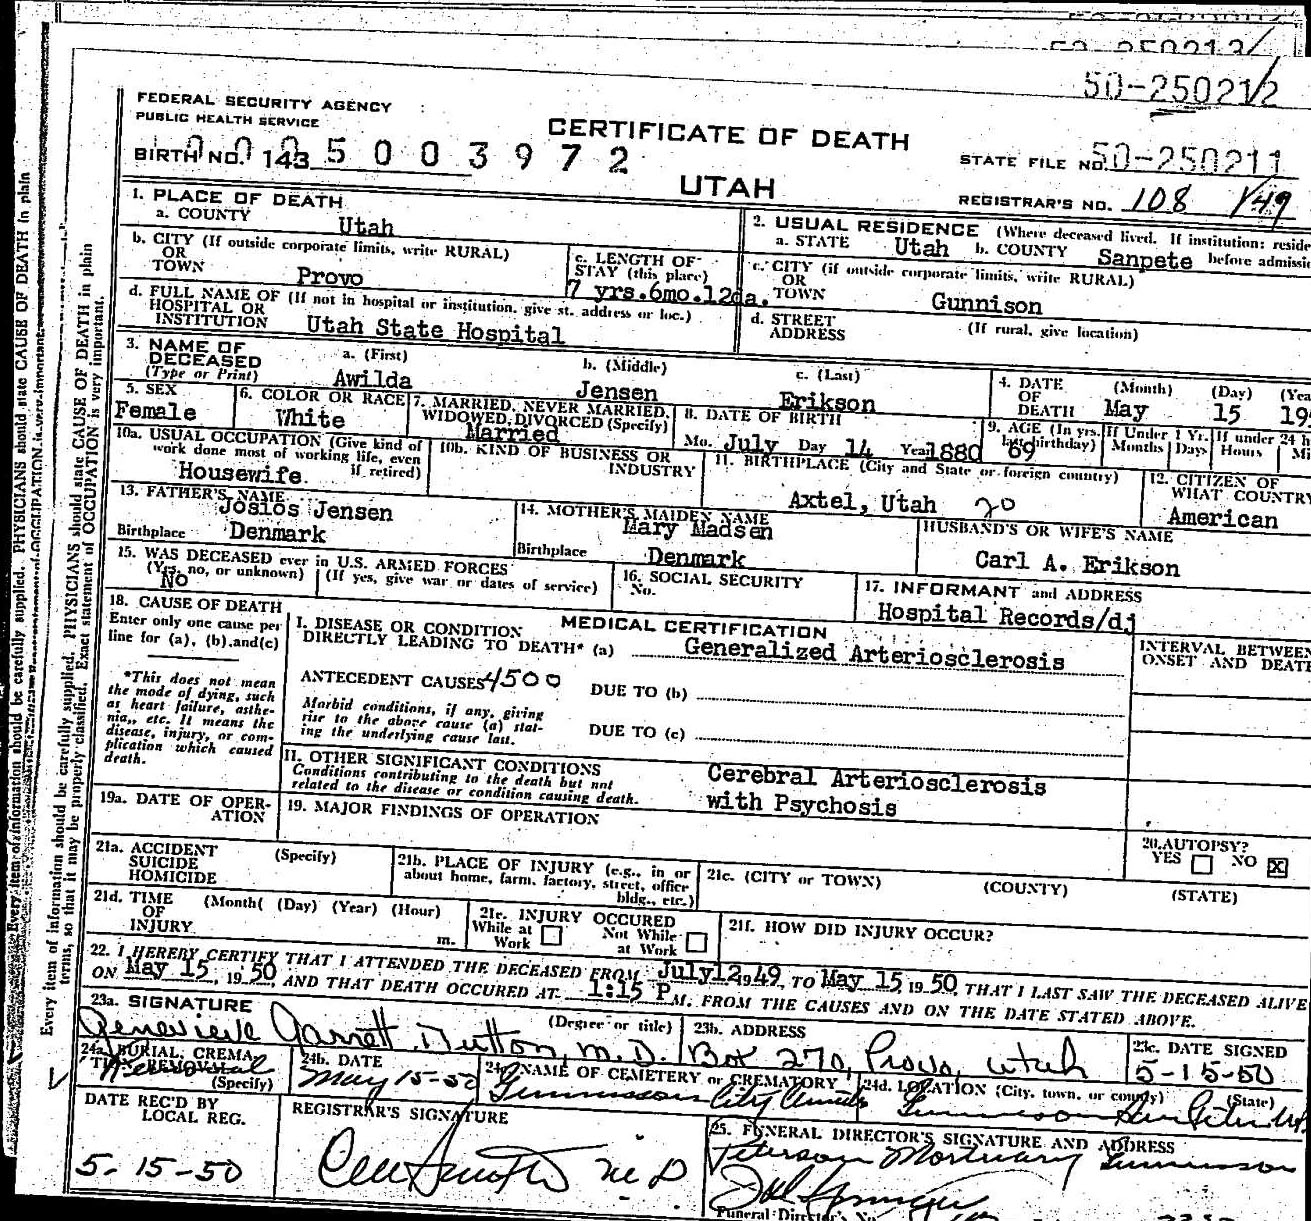 50-250212
FEDERAL SECURITY AGENCY
PUBLIC HEALTH SERVICE
CERTIFICATE OF DEATH
BIRTH NO. 143 5 0 0 3 9 7 2
STATE FILE NO. 50-250211
UTAH
REGISTRAR'S NO. 108 149
1. PLACE OF DEATH
a. COUNTY Utah
2. USUAL RESIDENCE (Where deceased lived. If institution: reside
a. STATE Utah b. COUNTY Sanpete before admissi
b. CITY (If outside corporate limits, write RURAL)
OR
TOWN Provo
c. LENGTH OF
STAY (this place)
7 yrs.6mo.12da.
c. CITY (if outside corporate limits, write RURAL)
OR
TOWN Gunnison
d. FULL NAME OF (If not in hospital or institution, give st. address or loc.)
HOSPITAL OR
INSTITUTION Utah State Hospital
d. STREET
ADDRESS (If rural, give location)
3. NAME OF
DECEASED
(Type or Print)
a. (First) b. (Middle) c. (Last)
Awilda Jensen Erikson
4. DATE
OF
DEATH (Month) (Day) (Yea
May 15 19
5. SEX
Female
6. COLOR OR RACE
White
7. MARRIED, NEVER MARRIED,
WIDOWED, DIVORCED (Specify)
Married
8. DATE OF BIRTH
Mo. July Day 14 Year 1880
9. AGE (In yrs.
last birthday) 69
If Under 1 Yr.
Months Days
If under 24 h
Hours Mi
10a. USUAL OCCUPATION (Give kind of
work done most of working life, even
if retired)
Housewife
10b. KIND OF BUSINESS OR
INDUSTRY
11. BIRTHPLACE (City and State or foreign country)
Axtel, Utah 20
12. CITIZEN OF
WHAT COUNTRY
American
13. FATHER'S NAME
Josios Jensen
Birthplace Denmark
14. MOTHER'S MAIDEN NAME
Mary Madsen
Birthplace Denmark
HUSBAND'S OR WIFE'S NAME
Carl A. Erikson
15. WAS DECEASED ever in U.S. ARMED FORCES
(Yes, no, or unknown) (If yes, give war or dates of service)
No
16. SOCIAL SECURITY
No.
17. INFORMANT and ADDRESS
Hospital Records/dj
18. CAUSE OF DEATH
Enter only one cause per
line for (a), (b), and (c)
*This does not mean
the mode of dying, such
as heart failure, asthe-
nia,, etc. It means the
disease, injury, or com-
plication which caused
death.
MEDICAL CERTIFICATION
I. DISEASE OR CONDITION
DIRECTLY LEADING TO DEATH* (a) Generalized Arteriosclerosis
INTERVAL BETWEEN
ONSET AND DEATH
ANTECEDENT CAUSES 4500 DUE TO (b)
Morbid conditions, if any, giving
rise to the above cause (a) stat-
ing the underlying cause last.
DUE TO (c)
II. OTHER SIGNIFICANT CONDITIONS
Conditions contributing to the death but not
related to the disease or condition causing death.
Cerebral Arteriosclerosis
with Psychosis
19a. DATE OF OPER-
ATION
19. MAJOR FINDINGS OF OPERATION
20. AUTOPSY?
YES NO X
21a. ACCIDENT
SUICIDE
HOMICIDE
(Specify)
21b. PLACE OF INJURY (e.g., in or
about home, farm, factory, street, office
bldg., etc.)
21c. (CITY or TOWN) (COUNTY) (STATE)
21d. TIME
OF
INJURY
(Month( (Day) (Year) (Hour)
m.
21e. INJURY OCCURED
While at
Work
Not While
at Work
21f. HOW DID INJURY OCCUR?
22. I HEREBY CERTIFY THAT I ATTENDED THE DECEASED FROM July12 19 49, TO May 15 19 50, THAT I LAST SAW THE DECEASED ALIVE
ON May 15, 19 50, AND THAT DEATH OCCURED AT 1:15 P M. FROM THE CAUSES AND ON THE DATE STATED ABOVE.
23a. SIGNATURE (Degree or title)
Genevieve Garrett Dutton, M.D.
23b. ADDRESS
Box 270, Provo, Utah
23c. DATE SIGNED
5-15-50
24a. BURIAL, CREMA-
TION, REMOVAL
(Specify)
Removal
24b. DATE
May 15-50
24c. NAME OF CEMETERY or CREMATORY
Gunnison City
24d. LOCATION (City, town, or county) (State)
Gunnison
DATE REC'D BY
LOCAL REG.
5-15-50
REGISTRAR'S SIGNATURE
M D
25. FUNERAL DIRECTOR'S SIGNATURE AND ADDRESS
Peterson Mortuary Gunnison
Funeral Director's No.
Every item of information should be carefully supplied. PHYSICIANS should state CAUSE OF DEATH in plain
terms, so that it may be properly classified. Exact statement of OCCUPATION is very important.